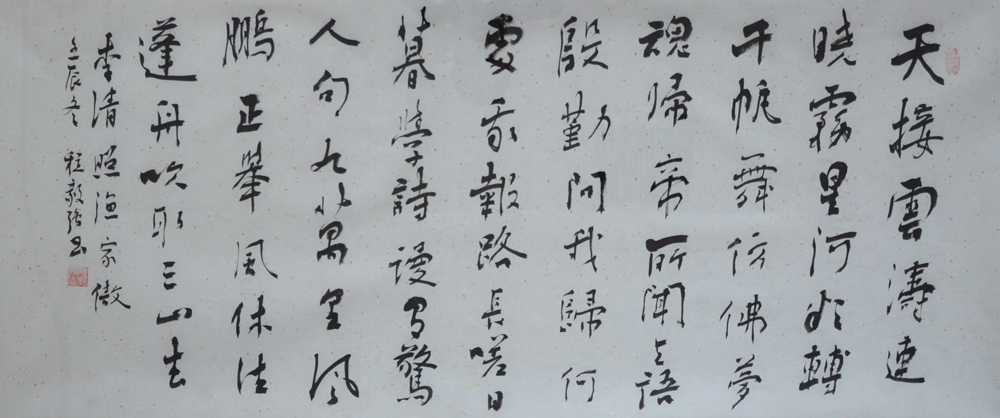 天接雲濤連
曉霧星河欲轉
千帆舞仿佛夢
魂帰帝所聞天語
殷勤問我歸何
處我報路長嗟日
暮學詩謾有驚
人句九萬里風
鵬正舉風休住
蓬舟吹取三山去
李清照漁家傲
壬辰冬 程毅强书